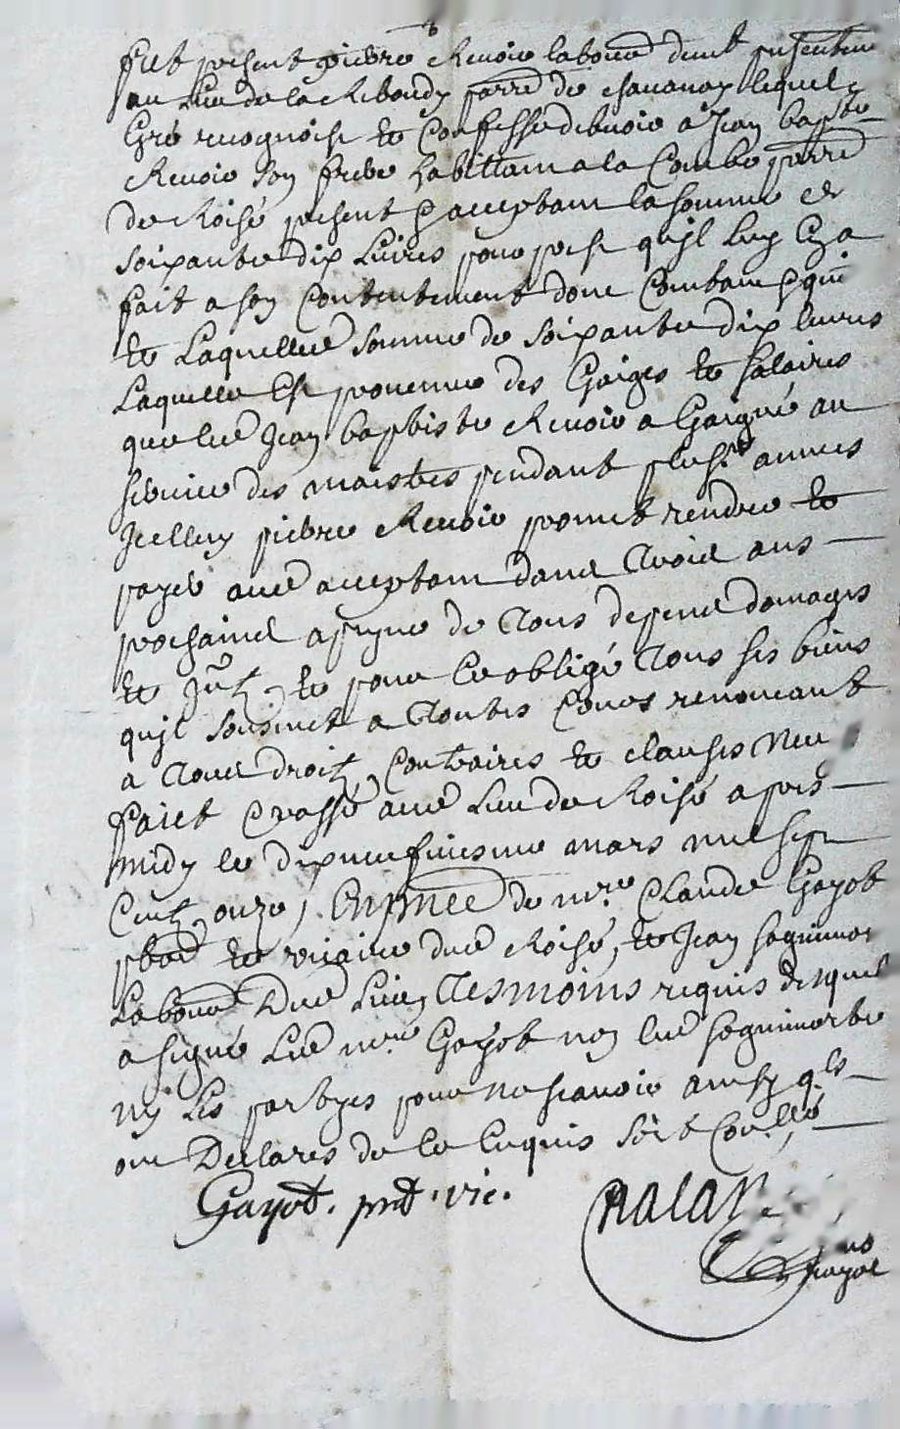 fut present pierre Revoir labour demt presentem
au lieu de la Ribaudy parre de chauanay lequel
Gré recognoist et Confesse debuoir a Jean bapte
Revoir son frere habittant a la Combe parre
de Roisé present & acceptant la somme de
soixante dix Liures pour prest quil luy en a
fait a son Contentement dont Contant & quit
et Laquelle somme de soixante dix liures
Laquelle Est prouenue des Gaiges et salaires
que led Jean baptiste Revoir a Gaigné au
seruice des maistres pendant plusrs années
Jcelluy pierre Revoir promet rendre et
payer aud acceptant dans Trois ans
prochains a peyne de Tous depens domages
et Jntz, et pour Ce obligé Tous ses biens
quil sousmet a Toutes Cours renoncant
a Tous droitz Contraires et clauses
faict & passé aud Lieu de Roisé apres
midy le dixneufuiesme mars mil sept
Centz onze, En pnce de mre Claude Gayot
pbre et viccaire dud Roisé, et Jean
Labour Dud Lieu, Tesmoins requis desquels
a signé Led mre Gayot non led
ny Les partyes pour ne scauoir ainsy qls
ont Declarés de Ce Enquis soit Con.llé
Gayot. prt. vic.